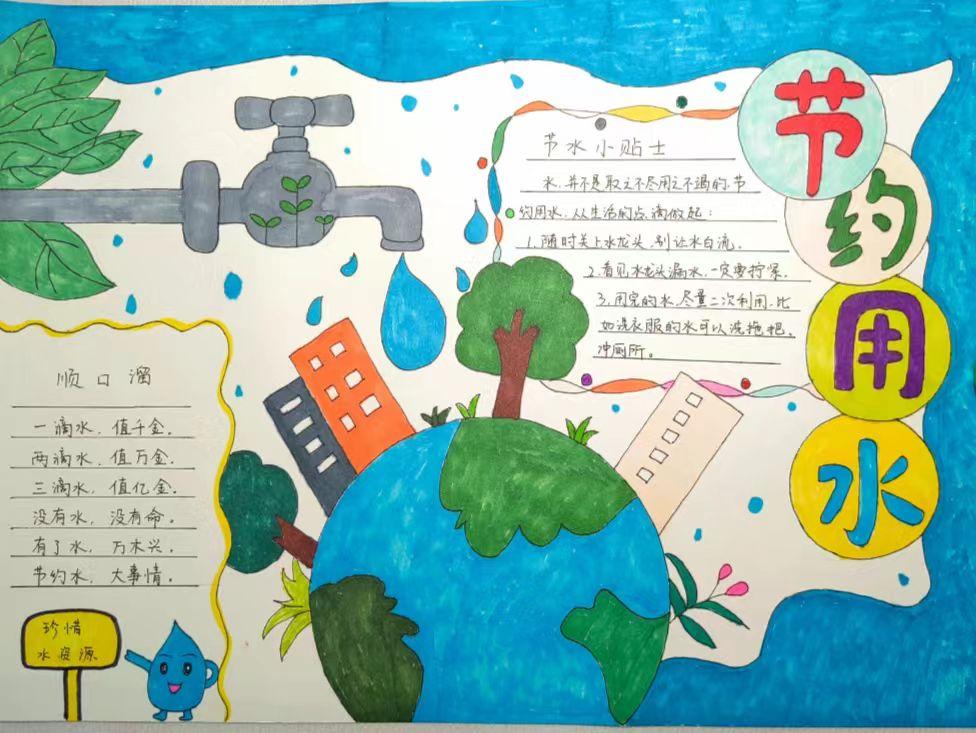 节约用水
节水小贴士
水，并不是取之不尽用之不竭的，节
约用水，从生活的点滴做起：
1.随时关上水龙头，别让水白流。
2.看见水龙头漏水，一定要拧紧。
3.用完的水，尽量二次利用，比
如洗衣服的水可以洗拖把，
冲厕所。
顺口溜
一滴水，值千金。
两滴水，值万金。
三滴水，值亿金。
没有水，没有命。
有了水，万木兴。
节约水，大事情。
珍惜
水资源